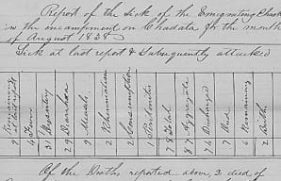 Report of the Sick of the Emigrating
in the encampment on Chadata for the month
of August 1838
Sick at last report & Subsequently attacked
9 Remaining at last report
4 Fever
31 Dysentery
29 Diarrhoea
9 Measles
2 Rheumatism
2 Consumption
1 Peritonitis
78 Total
87 Aggregate
74 Discharged
7 Died
6 Remaining
2 Birth
Of the Deaths reported above, 3 died of